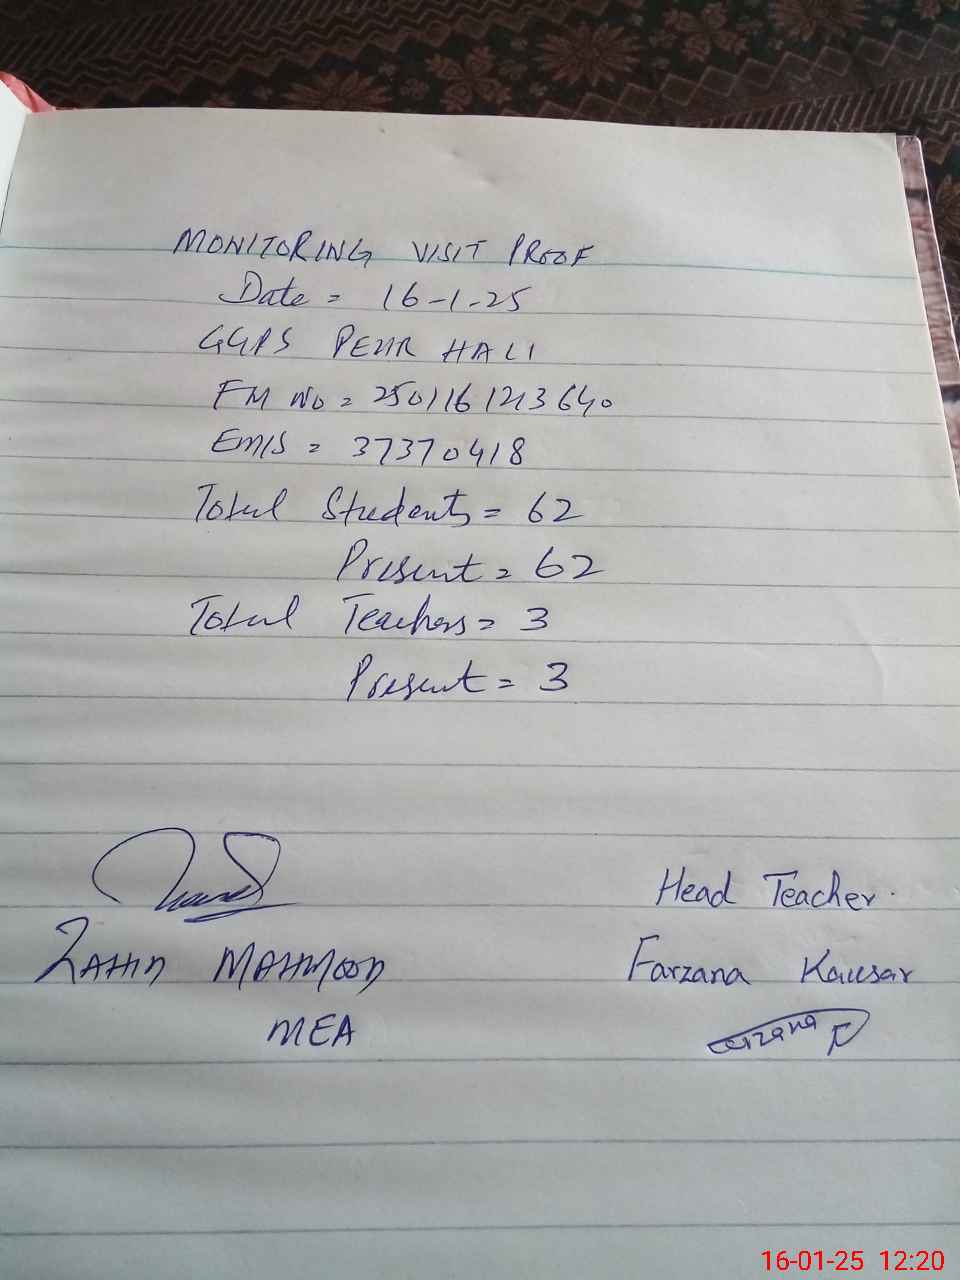 MONITORING VISIT PROOF
Date = 16-1-25
GGPS PEHR HALI
FM NO = 2501161213640
EMIS = 37370418
Total Students = 62
Present = 62
Total Teachers = 3
Present = 3
Head Teacher.
ZAHID MAHMOOD
Farzana Kausar
MEA
Farzana K
16-01-25 12:20